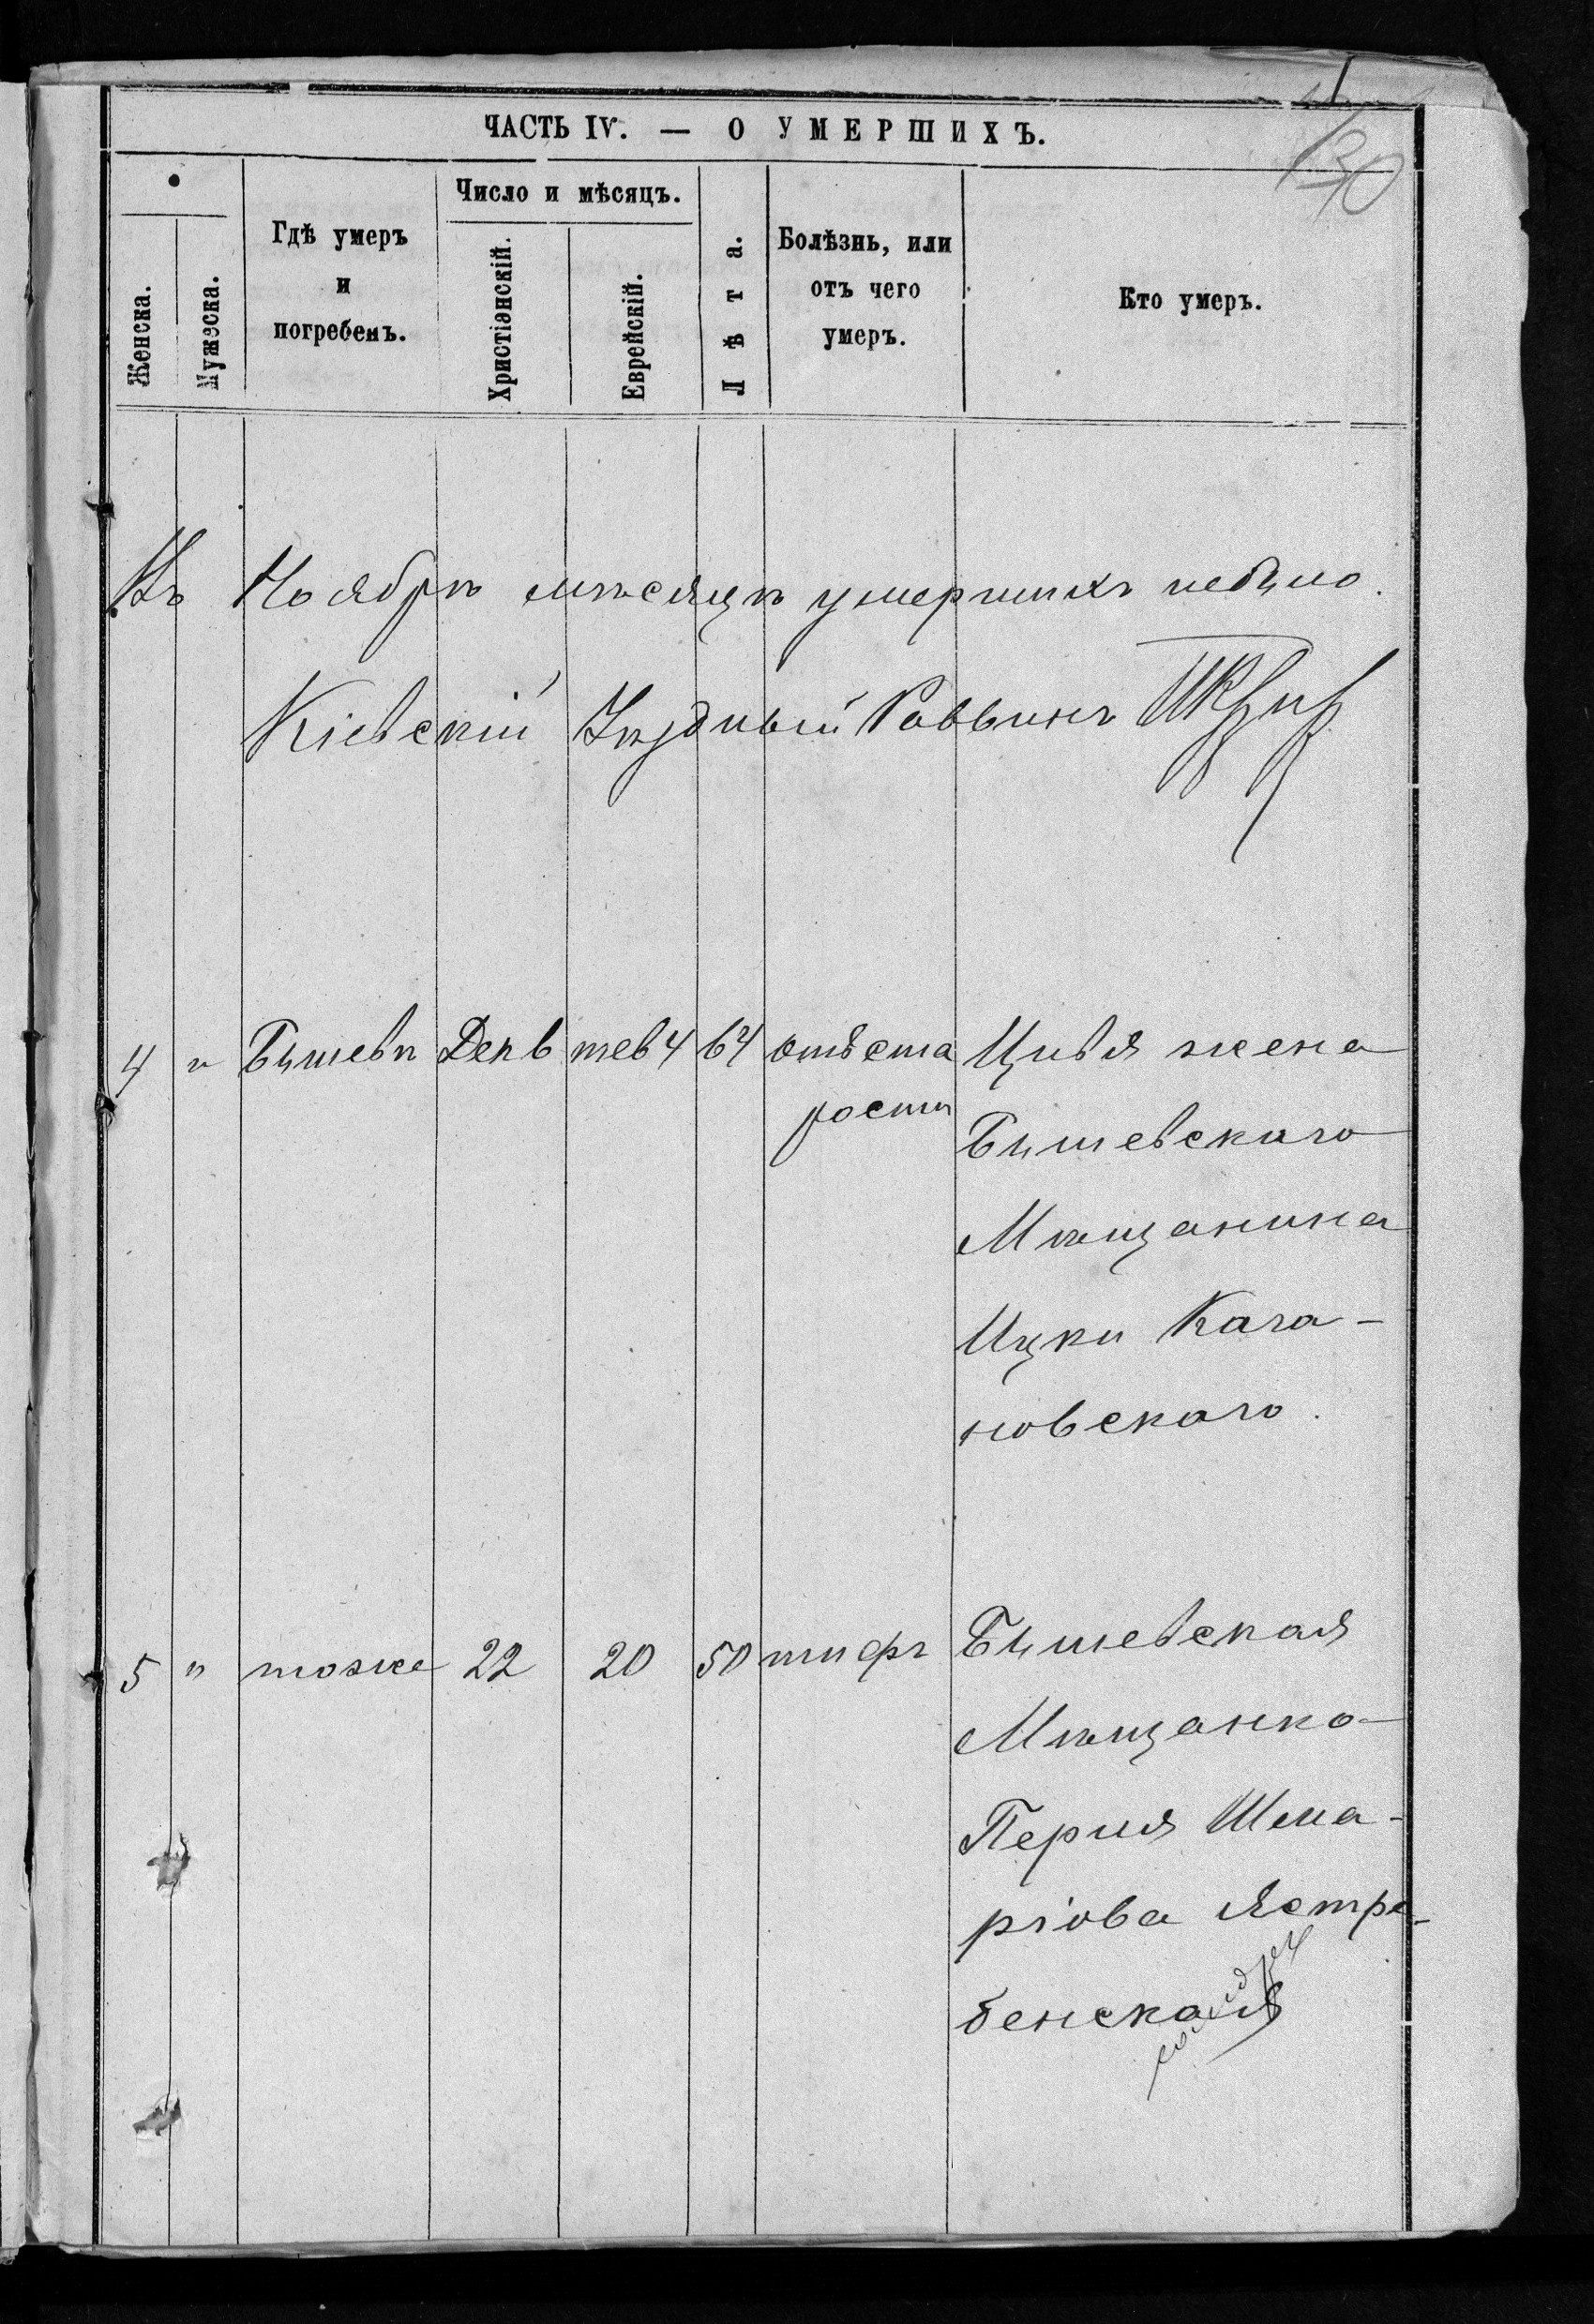 130
ЧАСТЬ IV. — О УМЕРШИХЪ.
Женска.
Мужеска.
Гдѣ умеръ
и
погребенъ.
Число и мѣсяцъ.
Христіянскій.
Еврейскій.
Лѣта.
Болѣзнь, или
отъ чего
умеръ.
Кто умеръ.
Въ Ноябрѣ мѣсяцѣ умершихъ небыло.
Кіевскій Уѣздный Раввинъ
4 " Бышевѣ Дек 6 тев 4 64 отъ ста Цивья жена
рости Бышевскаго
Мѣщанина
Ицки Кага-
новскаго.
5 " тоже 22 20 50 тифъ Бышевская
Мѣщанка
Перля Шма-
ріова Ястре-
бенская